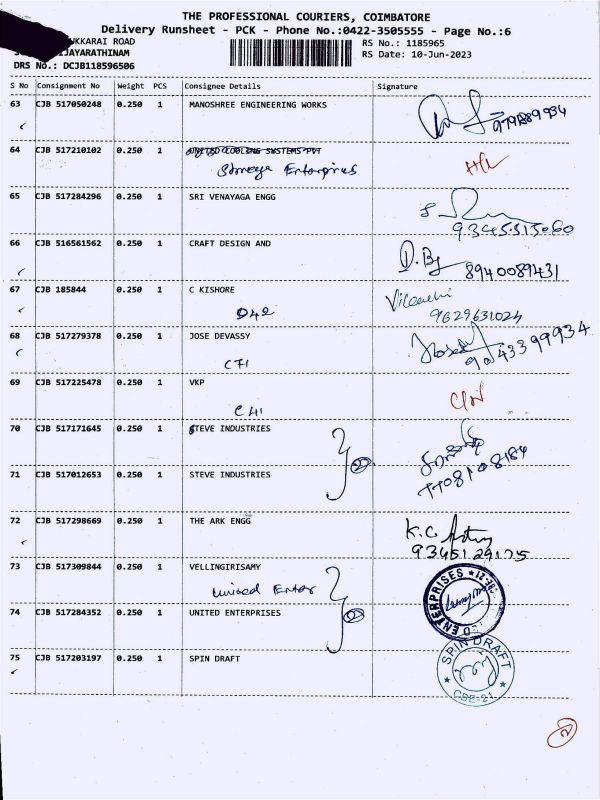 THE PROFESSIONAL COURIERS, COIMBATORE
Delivery Runsheet - PCK - Phone No.:0422-3505555 - Page No.:6
UKKARAI ROAD RS No.: 1185965
IJAYARATHINAM RS Date: 10-Jun-2023
DRS No.: DCJB118596506
S No Consignment No Weight PCS Consignee Details Signature
63 CJB 517050248 0.250 1 MANOSHREE ENGINEERING WORKS
64 CJB 517210102 0.250 1 UNITED COOLING SYSTEMS PVT
Enterprises
65 CJB 517284296 0.250 1 SRI VENAYAGA ENGG
9345515060
66 CJB 516561562 0.250 1 CRAFT DESIGN AND
8940089431
67 CJB 185844 0.250 1 C KISHORE
D42 9629631024
68 CJB 517279378 0.250 1 JOSE DEVASSY
C71
69 CJB 517225478 0.250 1 VKP
C41
70 CJB 517171645 0.250 1 STEVE INDUSTRIES
2
71 CJB 517012653 0.250 1 STEVE INDUSTRIES
72 CJB 517298669 0.250 1 THE ARK ENGG
K.C.
9345129175
73 CJB 517309844 0.250 1 VELLINGIRISAMY
United Enter
74 CJB 517284352 0.250 1 UNITED ENTERPRISES
2
75 CJB 517203197 0.250 1 SPIN DRAFT
SPIN DRAFT
CBE-21
2